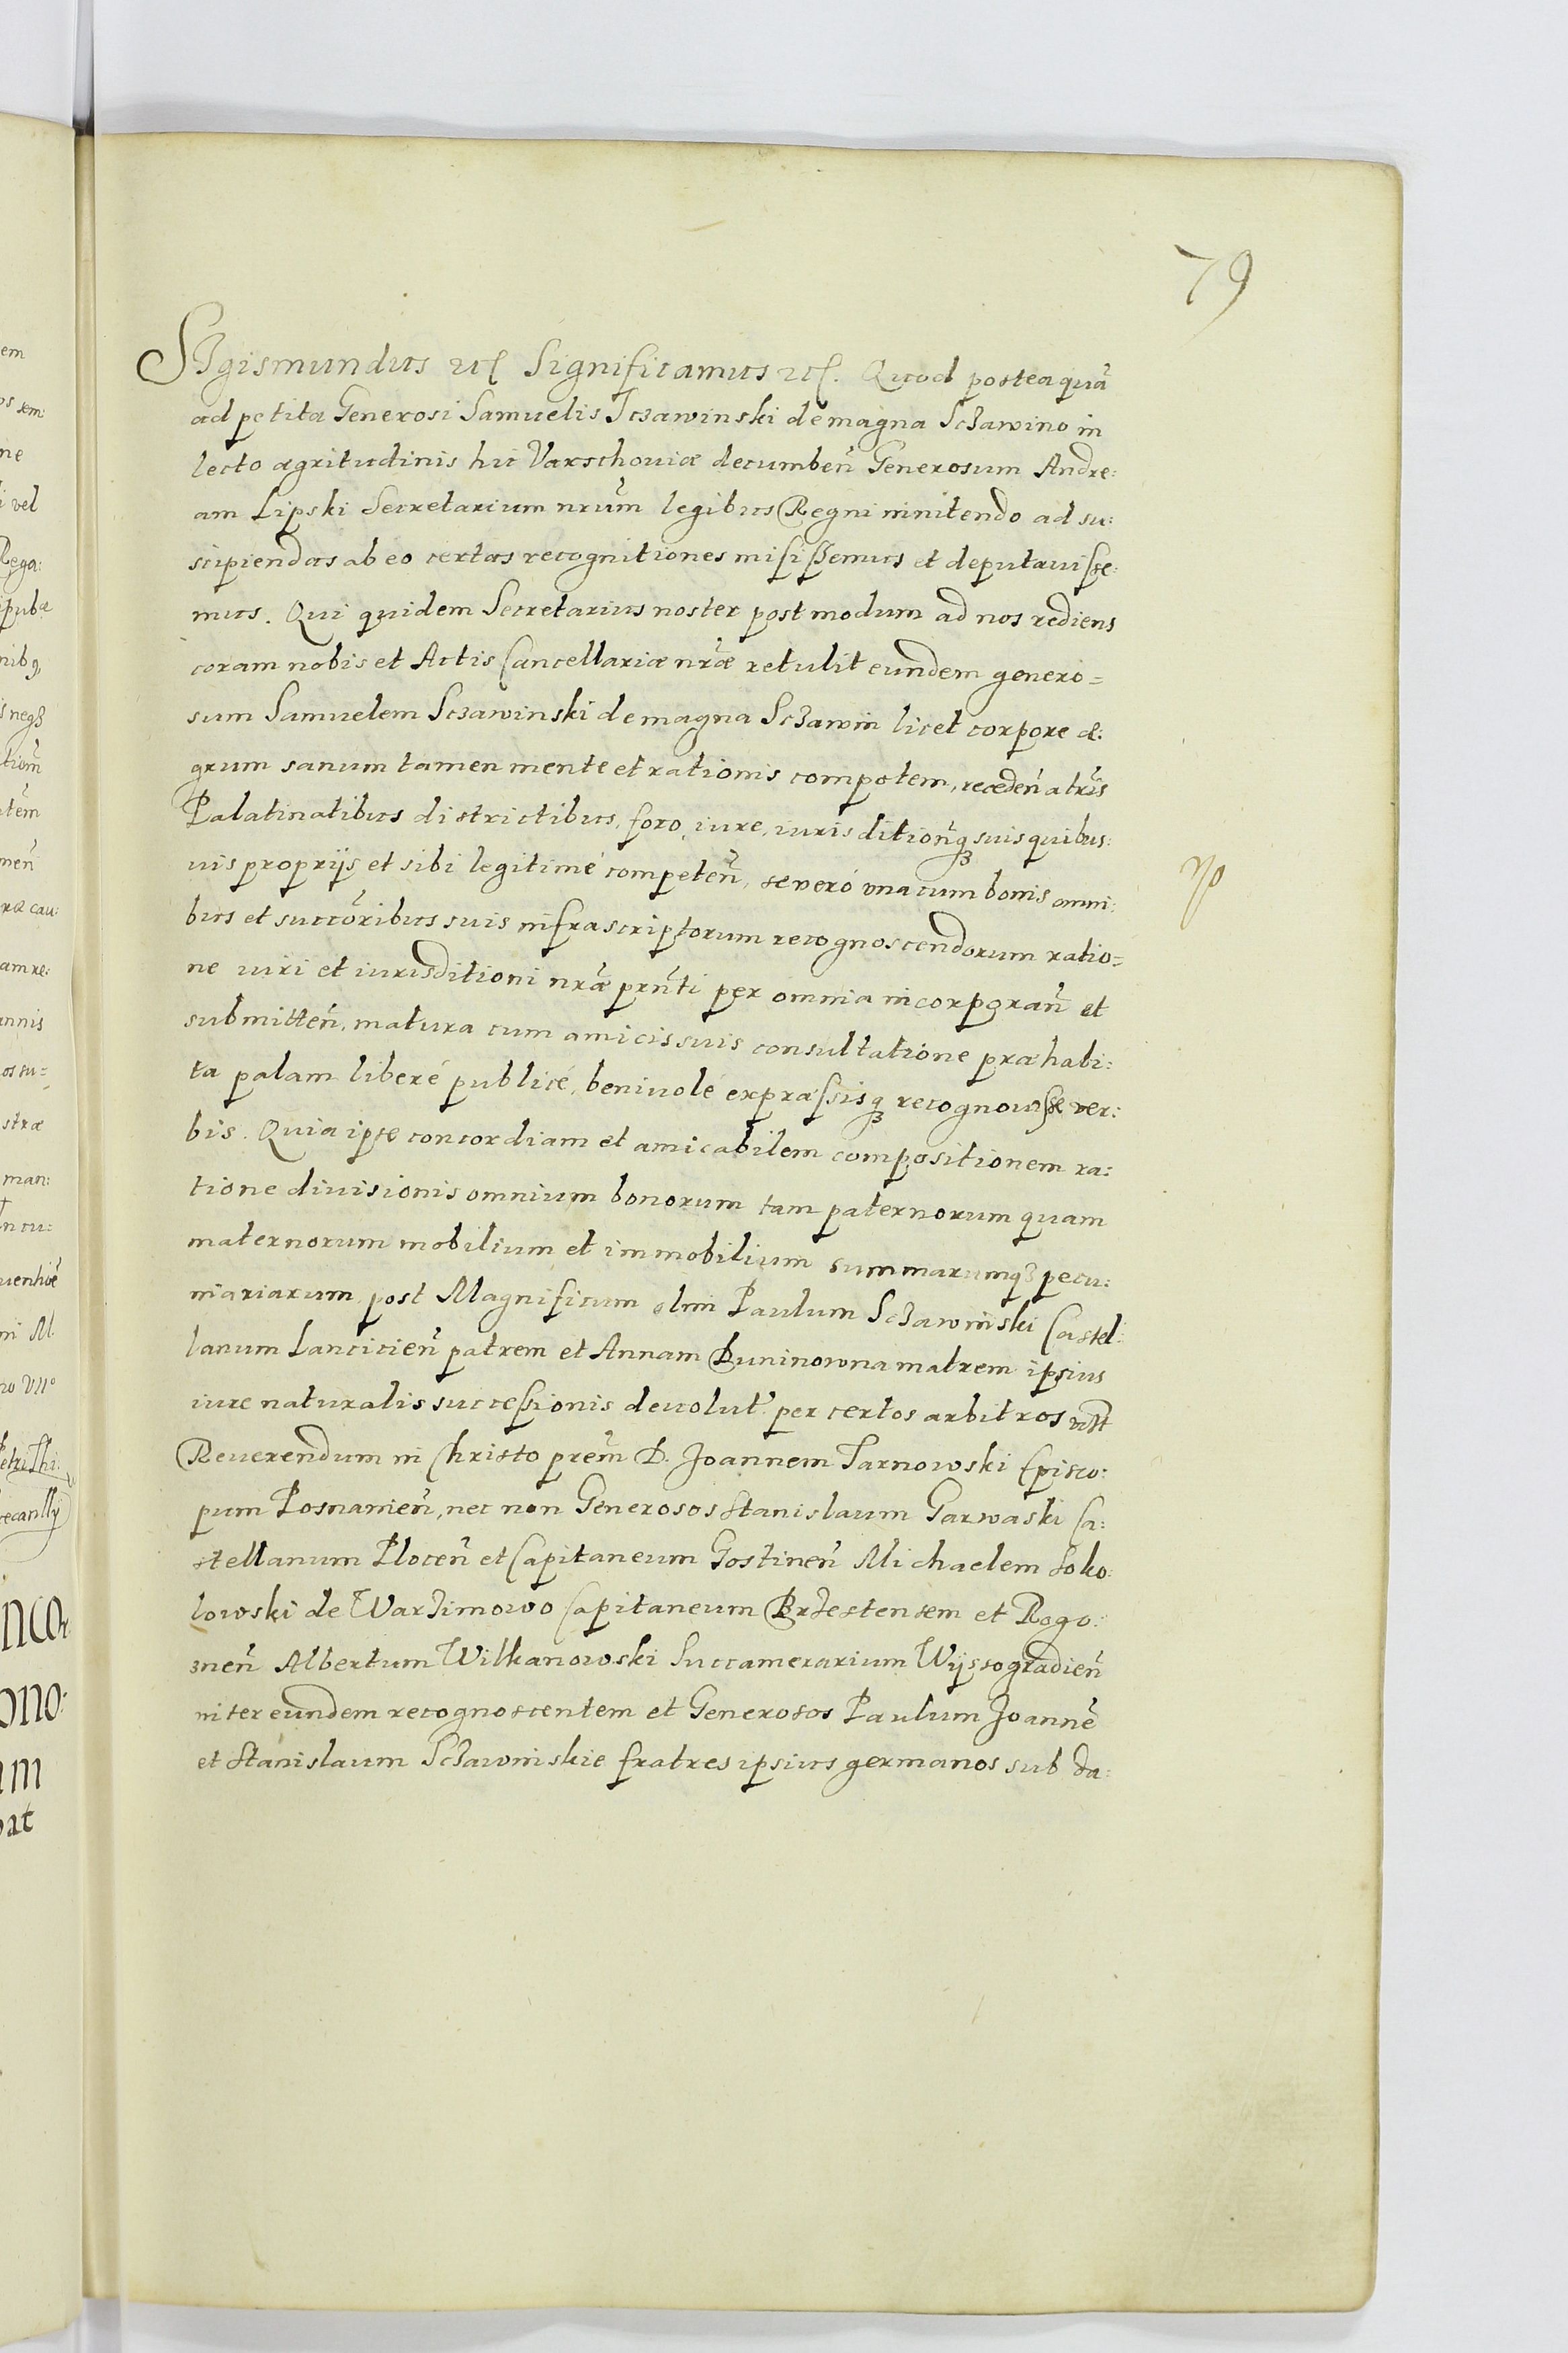 79
SIgismundus etc Significamus etc. Quod posteaquã
ad petita Generosi Samuelis Sczawinski de magna Sczawino in
lecto ægritudinis hic Varschouiæ decumbeñ Generosum Andre:
am Lipski Secretarium nrũm legibus Regni innitendo ad su:
scipiendas ab eo certas recognitiones misissemus et deputauisse:
mus. Qui quidem Secretarius noster postmodum ad nos rediens
coram nobis et Actis Cancellariæ nrãe retulit eundem genero=
sum Samuelem Sczawinski de magna Sczawin licet corpore æ:
grum sanum tamen mente et rationis compotem, recedeñ a trĩs
Palatinatibus districtibus, foro, iure, iurisditioñqꝫ suis quibus:
uis proprijs et sibi legitimé competeñ, se veró vna cum bonis omni:
bus et succõribus suis infrascriptorum recognoscendorum ratio=
ne iuri et iurisditioni nrãe prñti per omnia incorporañ et
submitteñ, matura cum amicis suis consultatione præhabi:
ta palam liberé publicé, beniuolé expræssisqꝫ recognouisse ver:
bis. Quia ipse concordiam et amicabilem compositionem ra:
tione diuisionis omnium bonorum tam paternorum quam
maternorum mobilium et immobilium summarumqꝫ pecu:
niariarum post Magnificum olim Paulum Sczawinski Castel:
lanum Lancicieñ patrem et Annam Buninowna matrem ipsius
iure naturalis successionis deuolut. per certos arbitros vtpt
Reuerendum in Christo prẽm D. Joannem Tarnowski Episco:
pum Posnanieñ, nec non Generosos Stanislaum Garwaski Ca:
stellanum Ploceñ et Capitaneum Gostineñ Michaelem Soko:
lowski de Warzimowo Capitaneum Brzestensem et Rogo:
zneñ Albertum Wilkanowski Succamerarium Wyssogradieñ
inter eundem recognoscentem et Generosos Paulum Joannẽ
et Stanislaum Sczawinskie fratres ipsius germanos sub da: